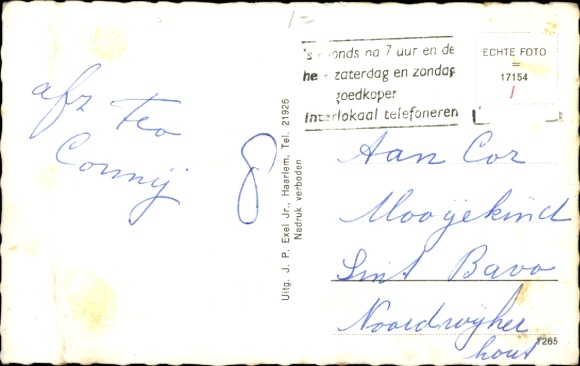 1=
's avonds na 7 uur en de
hele zaterdag en zondag
goedkoper
interlokaal telefoneren
ECHTE FOTO
=
17154
afz Teo
Connij
8
Uitg. J. P. Exel Jr., Haarlem, Tel. 21926
Nadruk verboden
Aan Cor
Mooijekind
Sint Bavo
Noordwijker
hout
7265